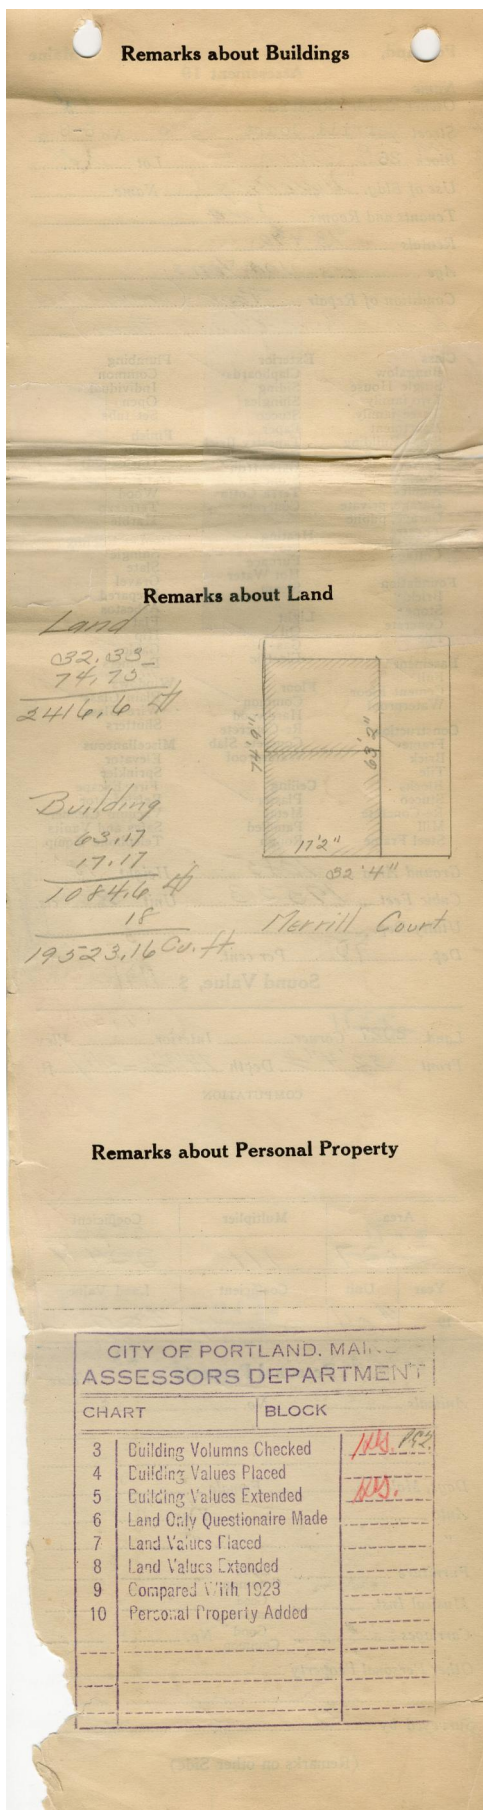 Remarks about Buildings
Remarks about Land
Land
32.33
74.75
2416.6
Building
63.17
17.17
1084.6
18
19523.16 Cu. ft.
74'9"
63'2"
17'2"
32'4"
Merrill Court
Remarks about Personal Property
CITY OF PORTLAND, MAINE
ASSESSORS DEPARTMENT
CHART BLOCK
3 Building Volumns Checked
4 Building Values Placed
5 Building Values Extended
6 Land Only Questionaire Made
7 Land Values Placed
8 Land Values Extended
9 Compared With 1923
10 Personal Property Added